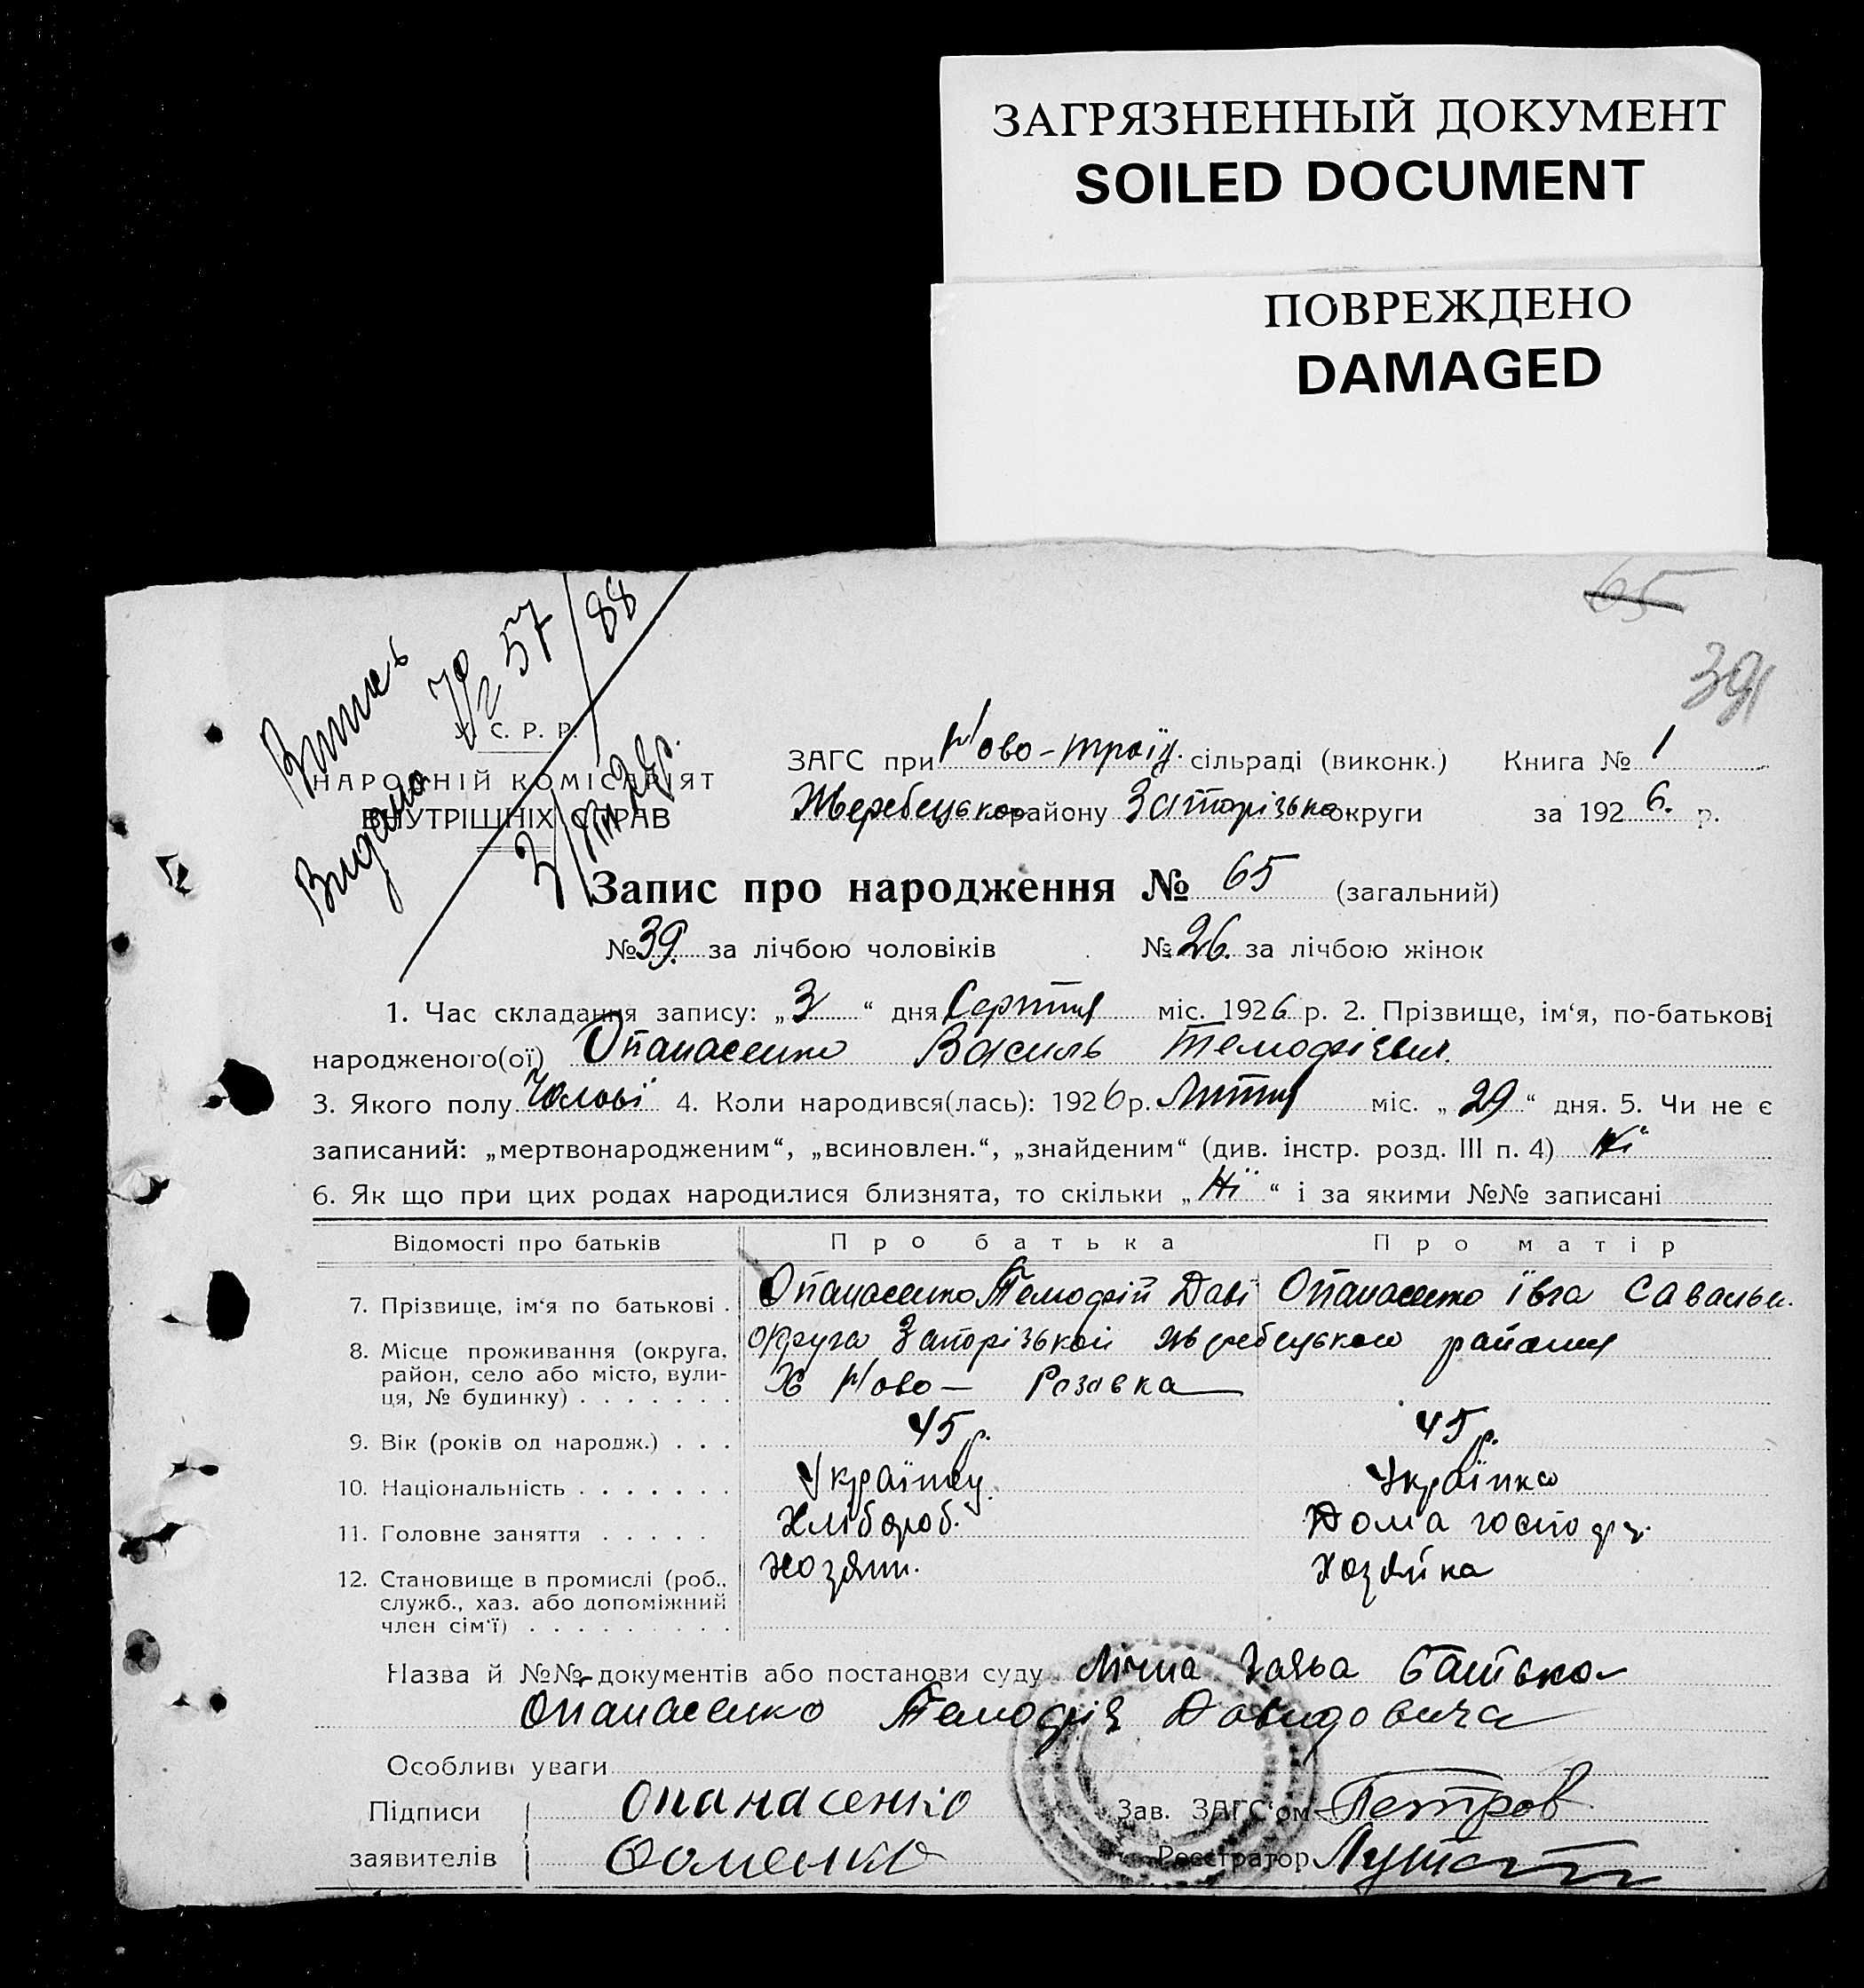 ЗАГРЯЗНЕННЫЙ ДОКУМЕНТ
SOILED DOCUMENT
ПОВРЕЖДЕНО
DAMAGED
65
39
Витяг
Видано
57/88
У. С. Р. Р.
НАРОДНІЙ КОМІСАРІЯТ
ВНУТРІШНІХ СПРАВ
ЗАГС при Ново-троїц. сільраді (виконк.) Книга № 1
Жеребецького району Запорізько округи за 1926. р.
Запис про народження № 65 (загальний)
№ 39. за лічбою чоловіків № 26. за лічбою жінок
1. Час складання запису: „3“ дня Серпня міс. 1926 р. 2. Прізвище, ім‘я, по-батькові
народженого(ої) Опанасенко Василь Темофієвич.
3. Якого полу Чолові 4. Коли народився(лась): 1926 р. Липня міс. „29“ дня. 5. Чи не є
записаний: „мертвонародженим“, „всиновлен.“, „знайденим“ (див. інстр. розд. III п. 4) Ні
6. Як що при цих родах народилися близнята, то скільки „Ні“ і за якими №№ записані
Відомості про батьків Про батька Про матір
7. Прізвище, ім‘я по батькові . Опанасенко Темофій Даві Опанасенко Івга Савельи.
8. Місце проживання (округа, округа Запорізькой жеребецького району
район, село або місто, вули- Х Ново- Розовка
ця, № будинку) . . . . . . .
9. Вік (років од народж.) . . . 45 р. 45 р.
10. Національність . . . . . . . Українец. Українка
11. Головне заняття . . . . . Хлібороб. Дома господ.
12. Становище в промислі (роб., хозяин. Хозяйка
служб., хаз. або допоміжний
член сім‘ї) . . . . . . . . .
Назва й №№ документів або постанови суду Лічна заява батька
Опанасенко Темофія Давидовича
Особливі уваги
Підписи Опанасенко Зав. ЗАГС‘ом Петров
заявителів Фоменко Реєстратор